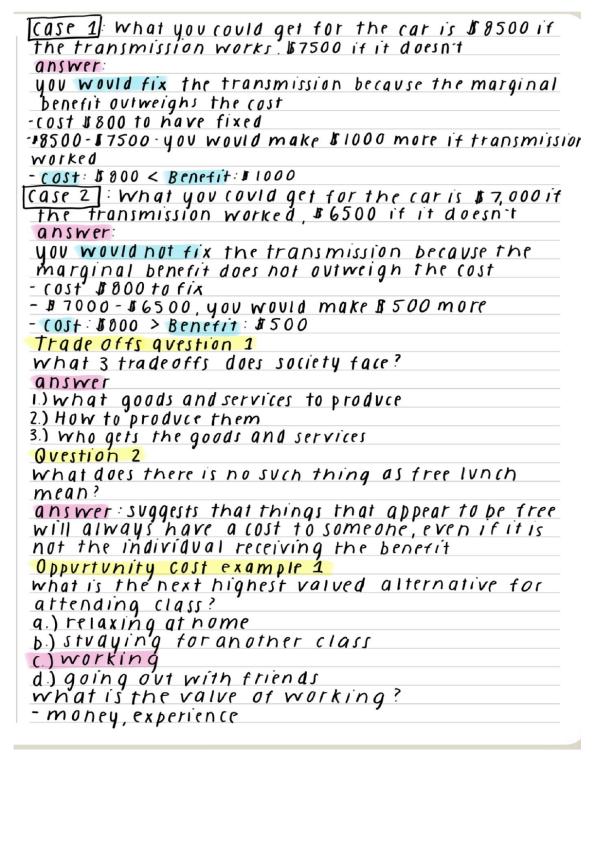 case 1: What you could get for the car is $8500 if
the transmission works. $7500 if it doesn't
answer:
you would fix the transmission because the marginal
benefit outweighs the cost
-cost $800 to have fixed
-$8500-$7500-you would make $1000 more if transmission
worked
- cost: $800 < Benefit: $1000
case 2: What you could get for the car is $7,000 if
the transmission worked, $6500 if it doesn't
answer:
you would not fix the transmission because the
marginal benefit does not outweigh the cost
- cost $800 to fix
- $7000-$6500, you would make $500 more
- cost: $800 > Benefit: $500
Trade offs question 1
What 3 tradeoffs does society face?
answer
1.) What goods and services to produce
2.) How to produce them
3.) Who gets the goods and services
Question 2
What does there is no such thing as free lunch
mean?
answer: suggests that things that appear to be free
will always have a cost to someone, even if it is
not the individual receiving the benefit
Oppurtunity cost example 1
What is the next highest valued alternative for
attending class?
a.) relaxing at home
b.) studying for another class
c.) working
d.) going out with friends
What is the value of working?
- money, experience